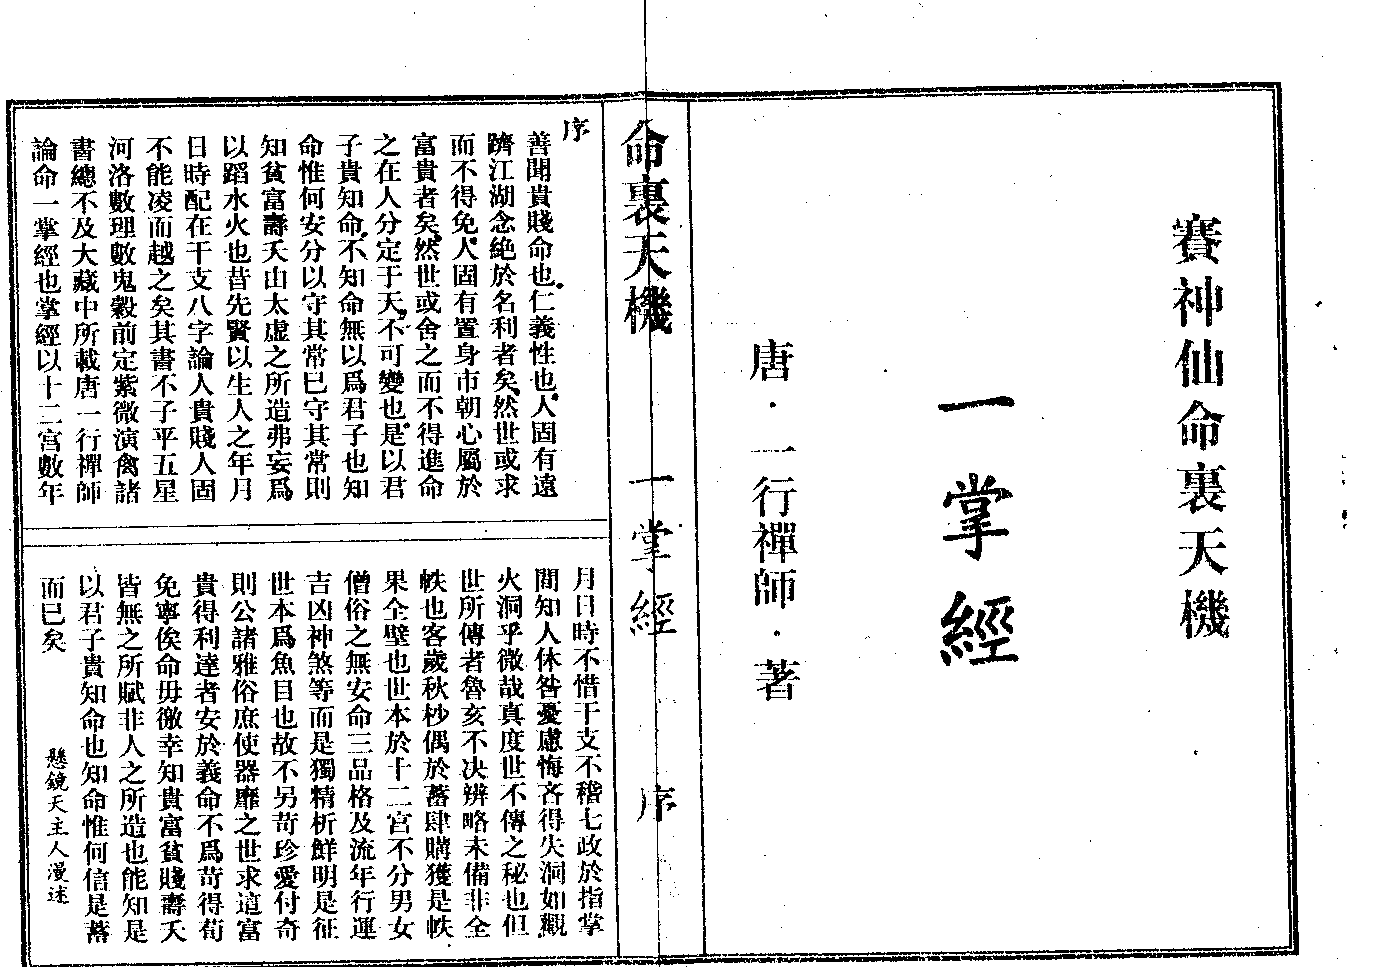 賽神仙命裏天機
一掌經
唐·一行禪師·著
命裏天機 一掌經 序
序
善聞貴賤命也仁義性也人固有遠
躋江湖念絶於名利者矣然世或求
而不得免人固有置身市朝心屬於
富貴者矣然世或舍之而不得進命
之在人分定于天不可變也是以君
子貴知命不知命無以爲君子也知
命惟何安分以守其常已守其常則
知貧富壽夭由太虚之所造弗妄爲
以蹈水火也昔先賢以生人之年月
日時配在干支八字論人貴賤人固
不能凌而越之矣其書不子平五星
河洛數理數鬼穀前定紫微演禽諸
書總不及大藏中所載唐一行禪師
論命一掌經也掌經以十二宫數年
月日時不惜干支不稽七政於指掌
間知人休咎憂慮悔吝得失洞如觀
火洞乎微哉真度世不傳之秘也但
世所傳者魯亥不决辨略未備非全
帙也客歲秋杪偶於蓄肆購獲是帙
果全璧也世本於十二宫不分男女
僧俗之無安命三品格及流年行運
吉凶神煞等而是獨精析鮮明是征
世本爲魚目也故不另苛珍愛付奇
則公諸雅俗庶使器靡之世求這富
貴得利達者安於義命不爲苛得苟
免寧俟命毋徼幸知貴富貧賤壽夭
皆無之所賦非人之所造也能知是
以君子貴知命也知命惟何信是蓄
而已矣
懸鏡天主人漫述